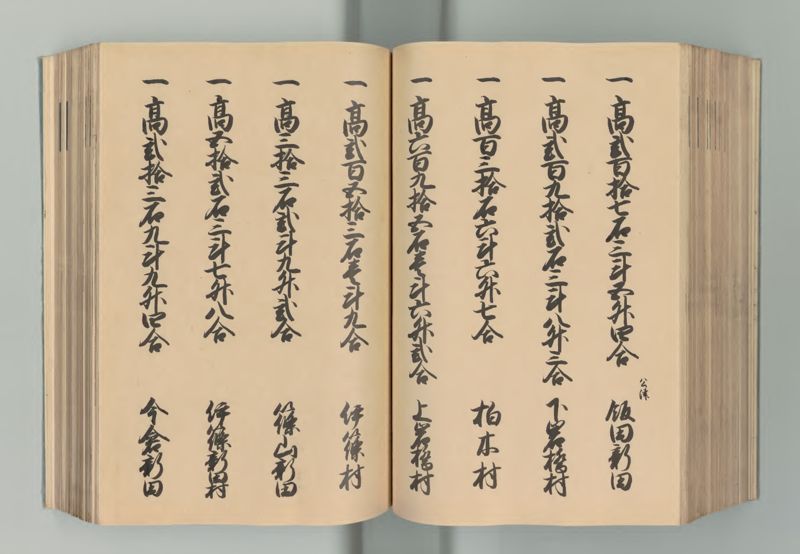 一高弐百拾七石三斗五升四合 飯田新田
一高弐百九拾弐石三斗八升三合 下岩橋村
一高百三拾石六斗六升七合 柏木村
一高六百九拾五石壱斗六升弐合 上岩橋村
一高弐百五拾三石壱斗九合 伊篠村
一高三拾三石弐斗九升弐合 篠山新田
一高五拾弐石三斗七升八合 伊篠新田村
一高弐拾三石九斗九升四合 今倉新田